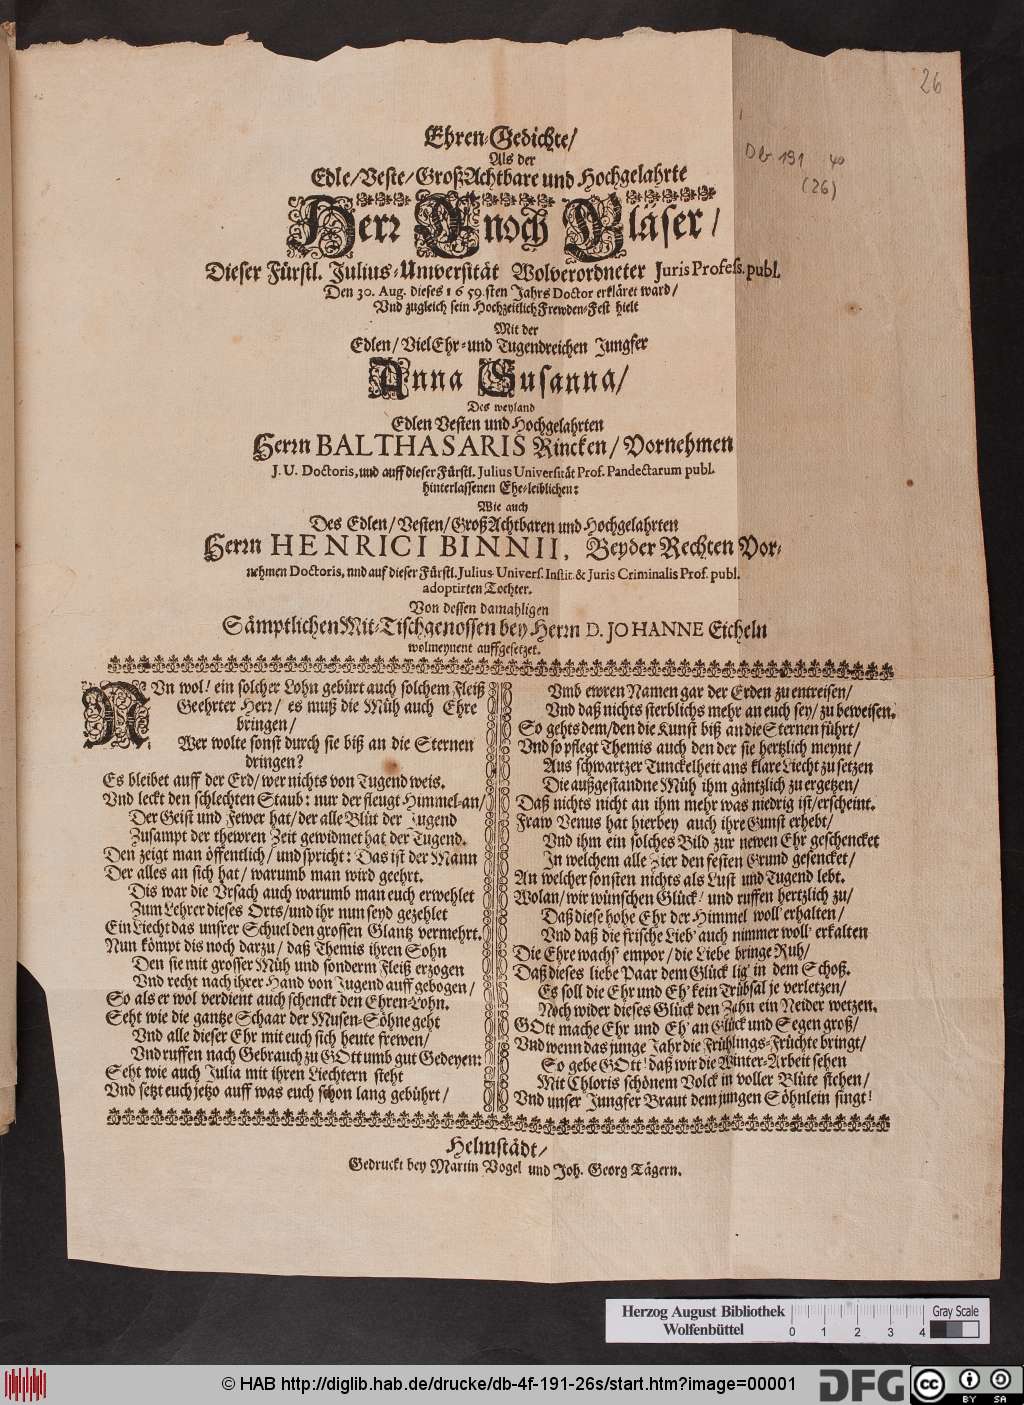 26
Db 191 4o
(26)
Ehren-Gedichte/
Als der
Edle/Veste/GroßAchtbare und Hochgelahrte
Herr Enoch Gläser/
Dieser Fürstl. Julius-Universität Wolverordneter Juris Profess. publ.
Den 30. Aug. dieses 1659.sten Jahrs Doctor erkläret ward/
Und zugleich sein HochzeitlichFrewden-Fest hielt
Mit der
Edlen/VielEhr-und Tugendreichen Jungfer
Anna Susanna/
Des weyland
Edlen Vesten und Hochgelahrten
Herrn BALTHASARIS Rincken/Vornehmen
J. U. Doctoris, und auff dieser Fürstl. Julius Universität Prof. Pandectarum publ.
hinterlassenen Ehe-leiblichen:
Wie auch
Des Edlen/Vesten/GroßAchtbaren und Hochgelahrten
Herrn HENRICI BINNII, Beyder Rechten Vor-
nehmen Doctoris, und auf dieser Fürstl. Julius Univers. Instit. & Juris Criminalis Prof. publ.
adoptirten Tochter.
Von dessen damahligen
Sämptlichen Mit-Tischgenossen bey Herrn D. JOHANNE Eicheln
wolmeynent auffgesetzet.
NUn wol! ein solcher Lohn gebürt auch solchem Fleiß
Geehrter Herr/ es muß die Müh auch Ehre
bringen/
Wer wolte sonst durch sie biß an die Sternen
dringen?
Es bleibet auff der Erd/wer nichts von Tugend weis.
Und leckt den schlechten Staub: nur der fleugt Himmel-an/
Der Geist und Fewer hat/der alle Blüt der Jugend
Zusampt der thewren Zeit gewidmet hat der Tugend.
Den zeigt man öffentlich/und spricht: Das ist der Mann
Der alles an sich hat/warumb man wird geehrt.
Dis war die Ursach auch warumb man euch erwehlet
Zum Lehrer dieses Orts/und ihr nun seyd gezehlet
Ein Liecht das unsrer Schuel den grossen Glantz vermehrt.
Nun kömpt dis noch darzu/daß Themis ihren Sohn
Den sie mit grosser Müh und sonderm Fleiß erzogen
Und recht nach ihrer Hand von Jugend auff gebogen/
So als er wol verdient auch schenckt den Ehren-Lohn.
Seht wie die gantze Schaar der Musen-Söhne geht
Und alle dieser Ehr mit euch sich heute frewen/
Und ruffen nach Gebrauch zu GOtt umb gut Gedeyen:
Seht wie auch Julia mit ihren Liechtern steht
Und setzt euch jetzo auff was euch schon lang gebührt/
Umb ewren Namen gar der Erden zu entreisen/
Und daß nichts sterblichs mehr an euch sey/zu beweisen.
So gehts dem/den die Kunst biß an die Sternen führt/
Und so pflegt Themis auch den der sie hertzlich meynt/
Aus schwartzer Tunckelheit ans klare Liecht zu setzen
Die außgestandne Müh ihm gäntzlich zu ergetzen/
Daß nichts nicht an ihm mehr was niedrig ist/erscheint.
Fraw Venus hat hierbey auch ihre Gunst erhebt/
Und ihm ein solches Bild zur newen Ehr geschencket
In welchem alle Zier den festen Grund gesencket/
An welcher sonsten nichts als Lust und Tugend lebt.
Wolan/wir wünschen Glück! und ruffen hertzlich zu/
Daß diese hohe Ehr der Himmel woll' erhalten/
Und daß die frische Lieb' auch nimmer woll' erkalten
Die Ehre wachs' empor/die Liebe bringe Ruh/
Daß dieses liebe Paar dem Glück lig' in dem Schoß.
Es soll die Ehr und Eh' kein Trübsal je verletzen/
Noch wider dieses Glück den Zahn ein Neider wetzen.
GOtt mache Ehr und Eh' an Glück und Segen groß/
Und wenn das junge Jahr die Frühlings-Früchte bringt/
So gebe GOtt! daß wir die Winter-Arbeit sehen
Mit Chloris schönem Volck in voller Blüte stehen/
Und unser Jungfer Braut dem jungen Söhnlein singt!
Helmstädt/
Gedruckt bey Martin Vogel und Joh. Georg Tägern.
Herzog August Bibliothek
Wolfenbüttel
0 1 2 3 4
Gray Scale
© HAB http://diglib.hab.de/drucke/db-4f-191-26s/start.htm?image=00001
DFG
cc BY SA